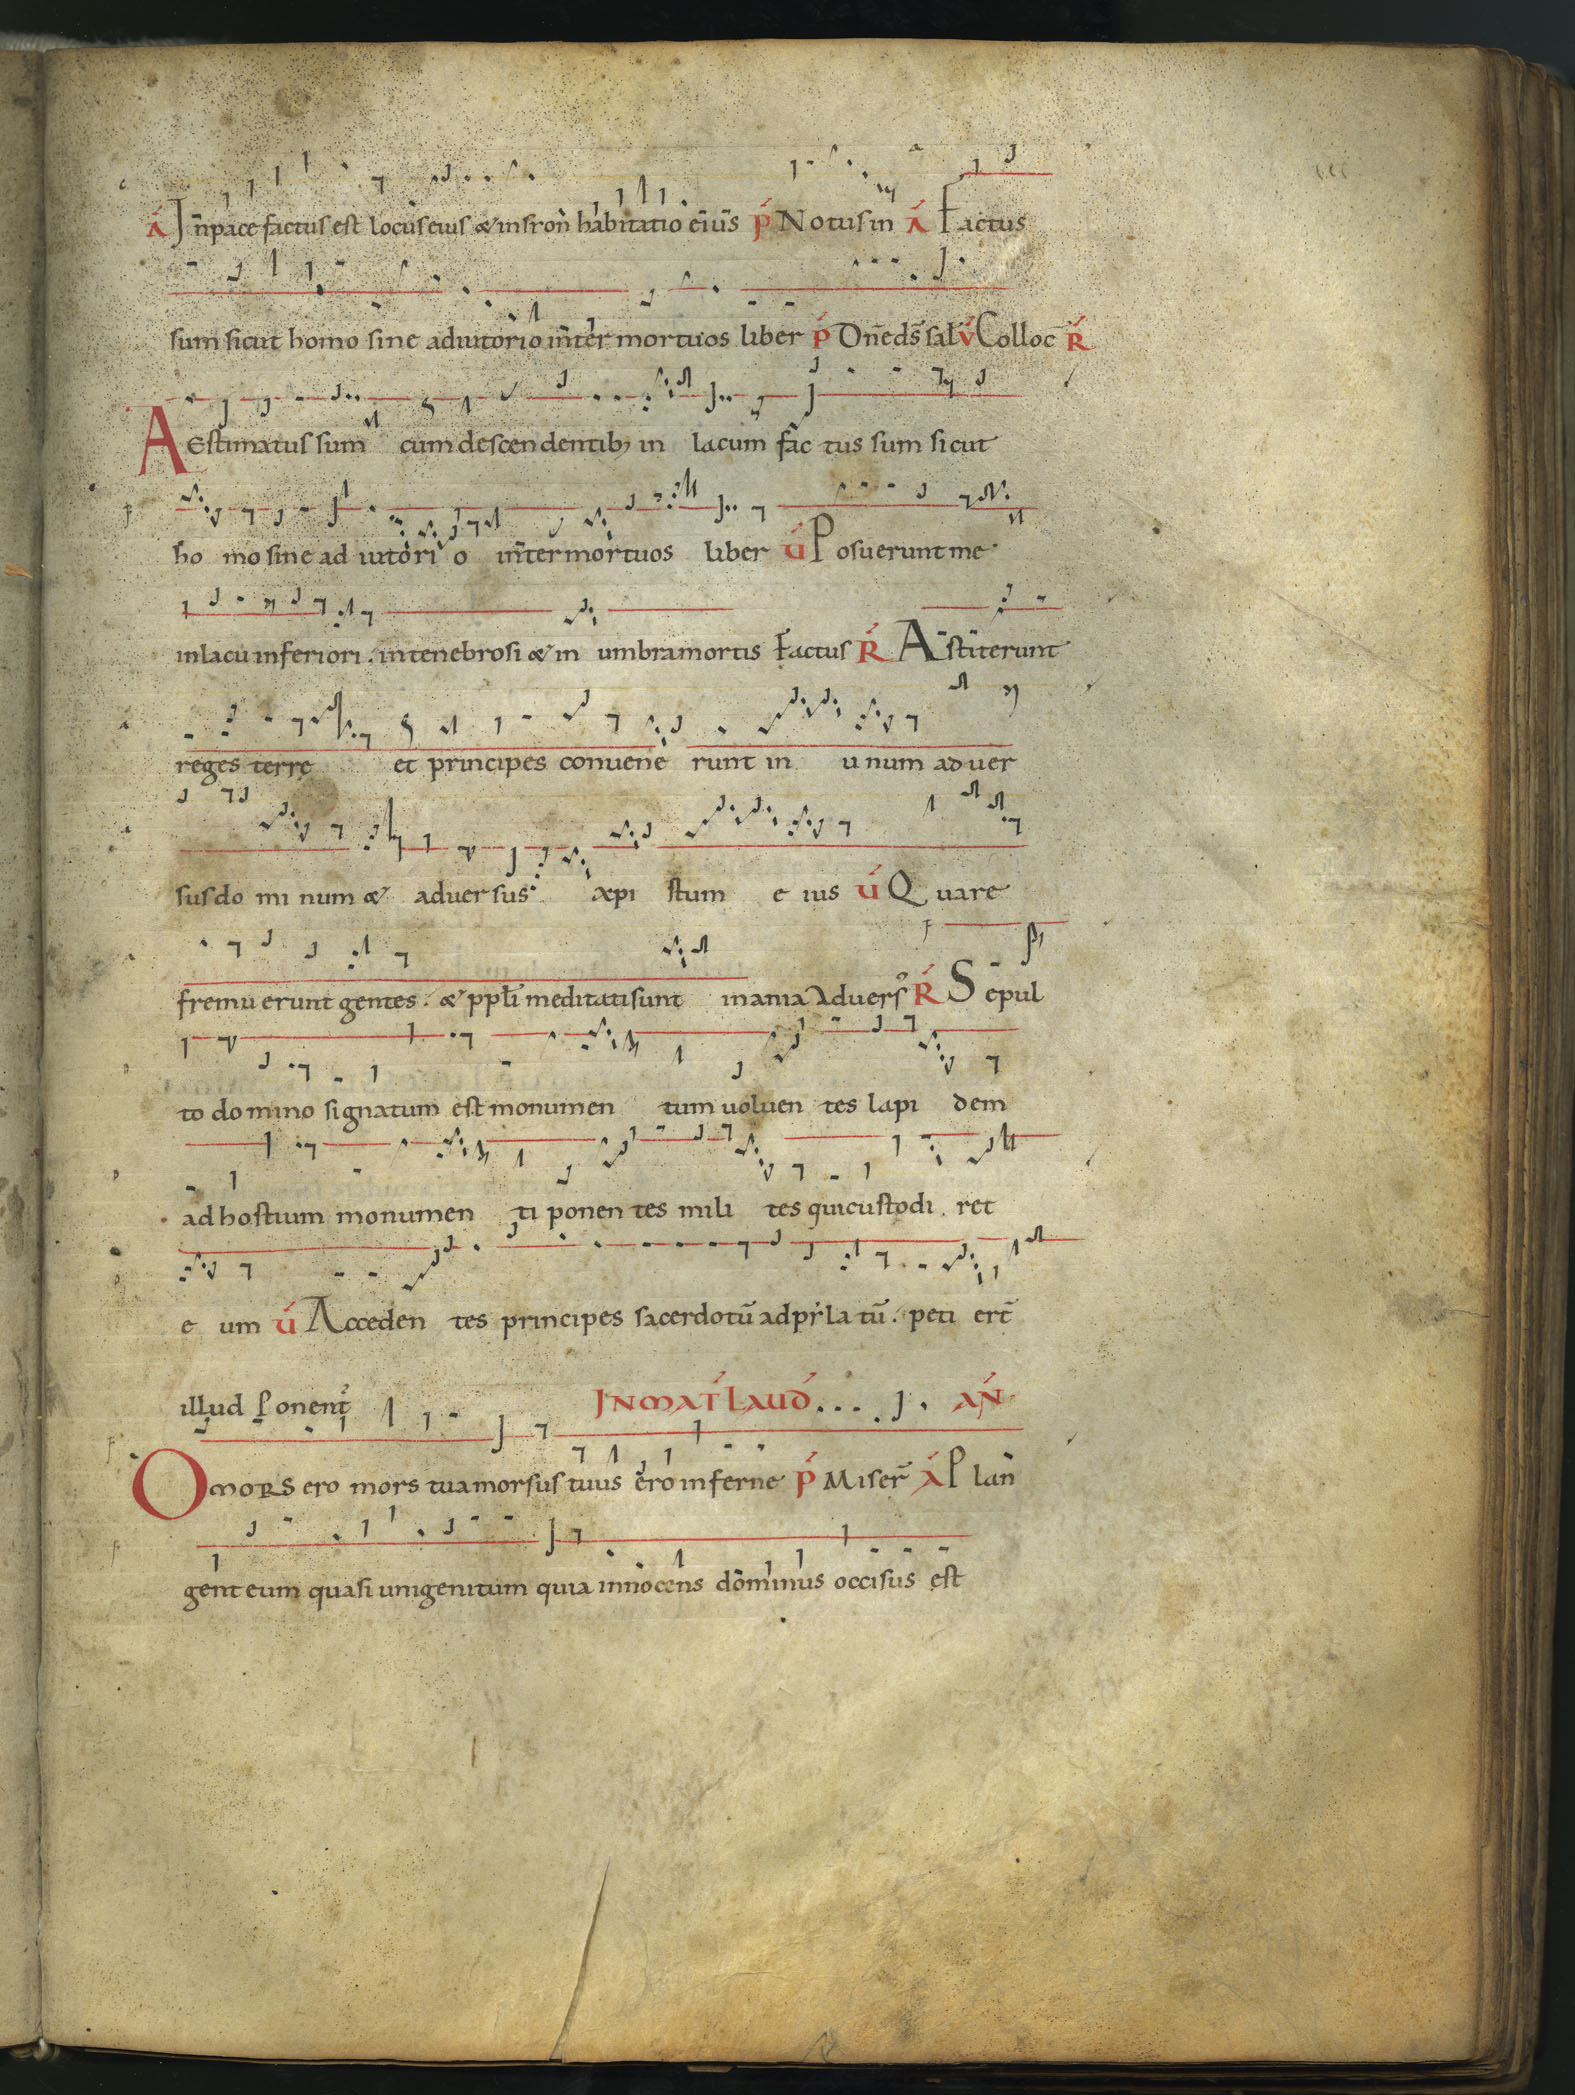 Ā In pace factus est locus eius & insion habitatio eius P̄ Notus in Ā Factus
sum sicut homo sine adiutorio inter mortuos liber P̄ Dn̄e ds̄ sal V̄ Colloc̄ R̄
AEstimatus sum cum descendentib; in lacum fac tus sum sicut
ho mo sine ad iutori o inter mortuos liber V̄ Posuerunt me
in lacu inferiori . in tenebrosi & in umbra mortis Factus R̄ Astiterunt
reges terrę et principes convene runt in unum aduer
sus do mi num & aduer sus xpi stum e ius V̄ Quare
fremuerunt gentes . & ppl̄i meditati sunt inania Aduers̉ R̄ Sepul
to domino signatum est monumen tum uoluen tes lapi dem
ad hostium monumen ti ponen tes mili tes qui custodi . ret
e um V̄ Acceden tes principes sacerdotū ad pylatū . peti ert̄
illud Ponent̉ IN MAT̄ LAUD̄ AN̄
O MORS ero mors tua morsus tuus ero inferne P̄ Miser̄ Ā Plan
gent eum quasi unigenitum quia innocens dominus occisus est